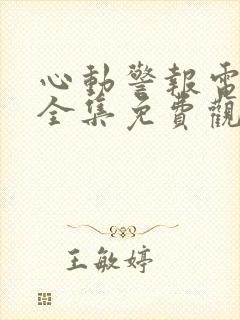 心動警報電
全集免費觀
王敏婷